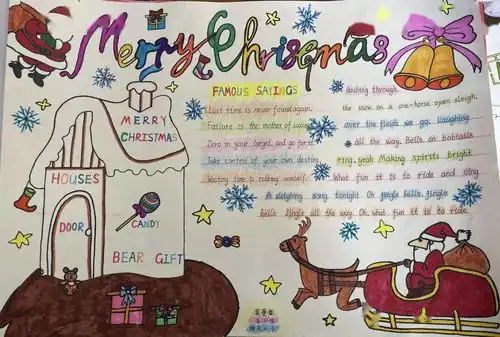 Merry Chrismas
FAMOUS SAYINGS
Lost time is never found again.
Failure is the mother of success
Zero in your target, and go for it.
Take control of your own destiny
Wasting time is robbing oneself.
dashing through
the snow on a one-horse open sleigh,
over the fields we go, laughing
all the way. Bells on bobtails
ring, yeah Making spirits bright
What fun it is to ride and sing
A sleighing song tonight Oh jingle bells, jingle
bells Jingle all the way. Oh, what fun it is to ride
MERRY
CHRISTMAS
HOUSES
DOOR
CANDY
BEAR GIFT